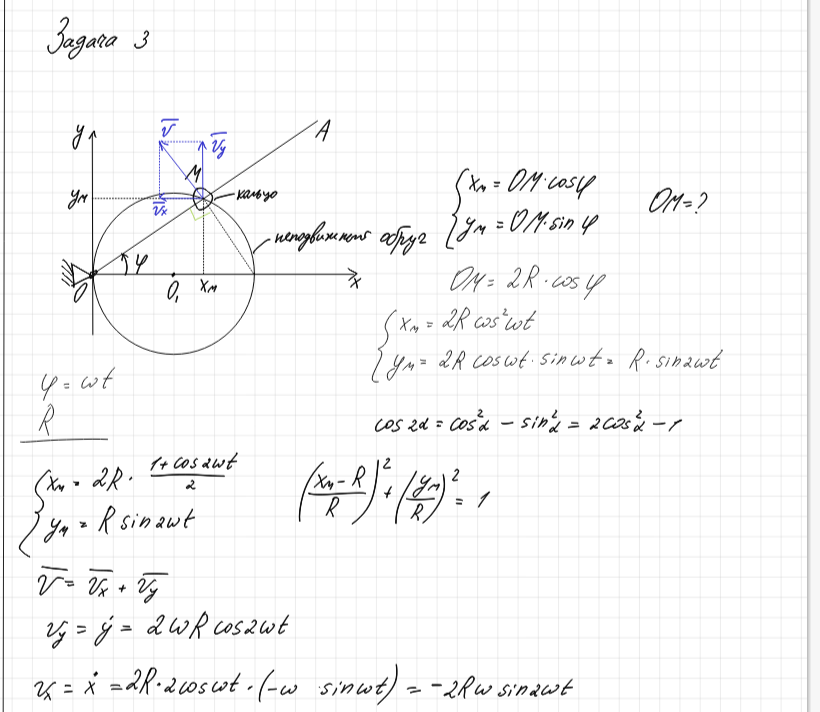 Задача 3
y
v̅
v̅y
A
M
yм
v̅x
кольцо
неподвижного обруч
φ
O
O₁
xм
x
{ xм = OM·cosφ
yм = OM·sin φ
OM=?
OM = 2R·cosφ
{ xм = 2R cos²ωt
yм = 2R cosωt·sinωt = R·sin2ωt
φ = ωt
R
cos2α = cos²α − sin²α = 2cos²α − 1
{ xм = 2R · (1+cos2ωt)/2
yм = R sin2ωt
((xм − R)/R)² + (yм/R)² = 1
v̅ = v̅x + v̅y
vy = ẏ = 2ωR cos2ωt
vx = ẋ = 2R·2cosωt·(−ω sinωt) = −2Rω sin2ωt